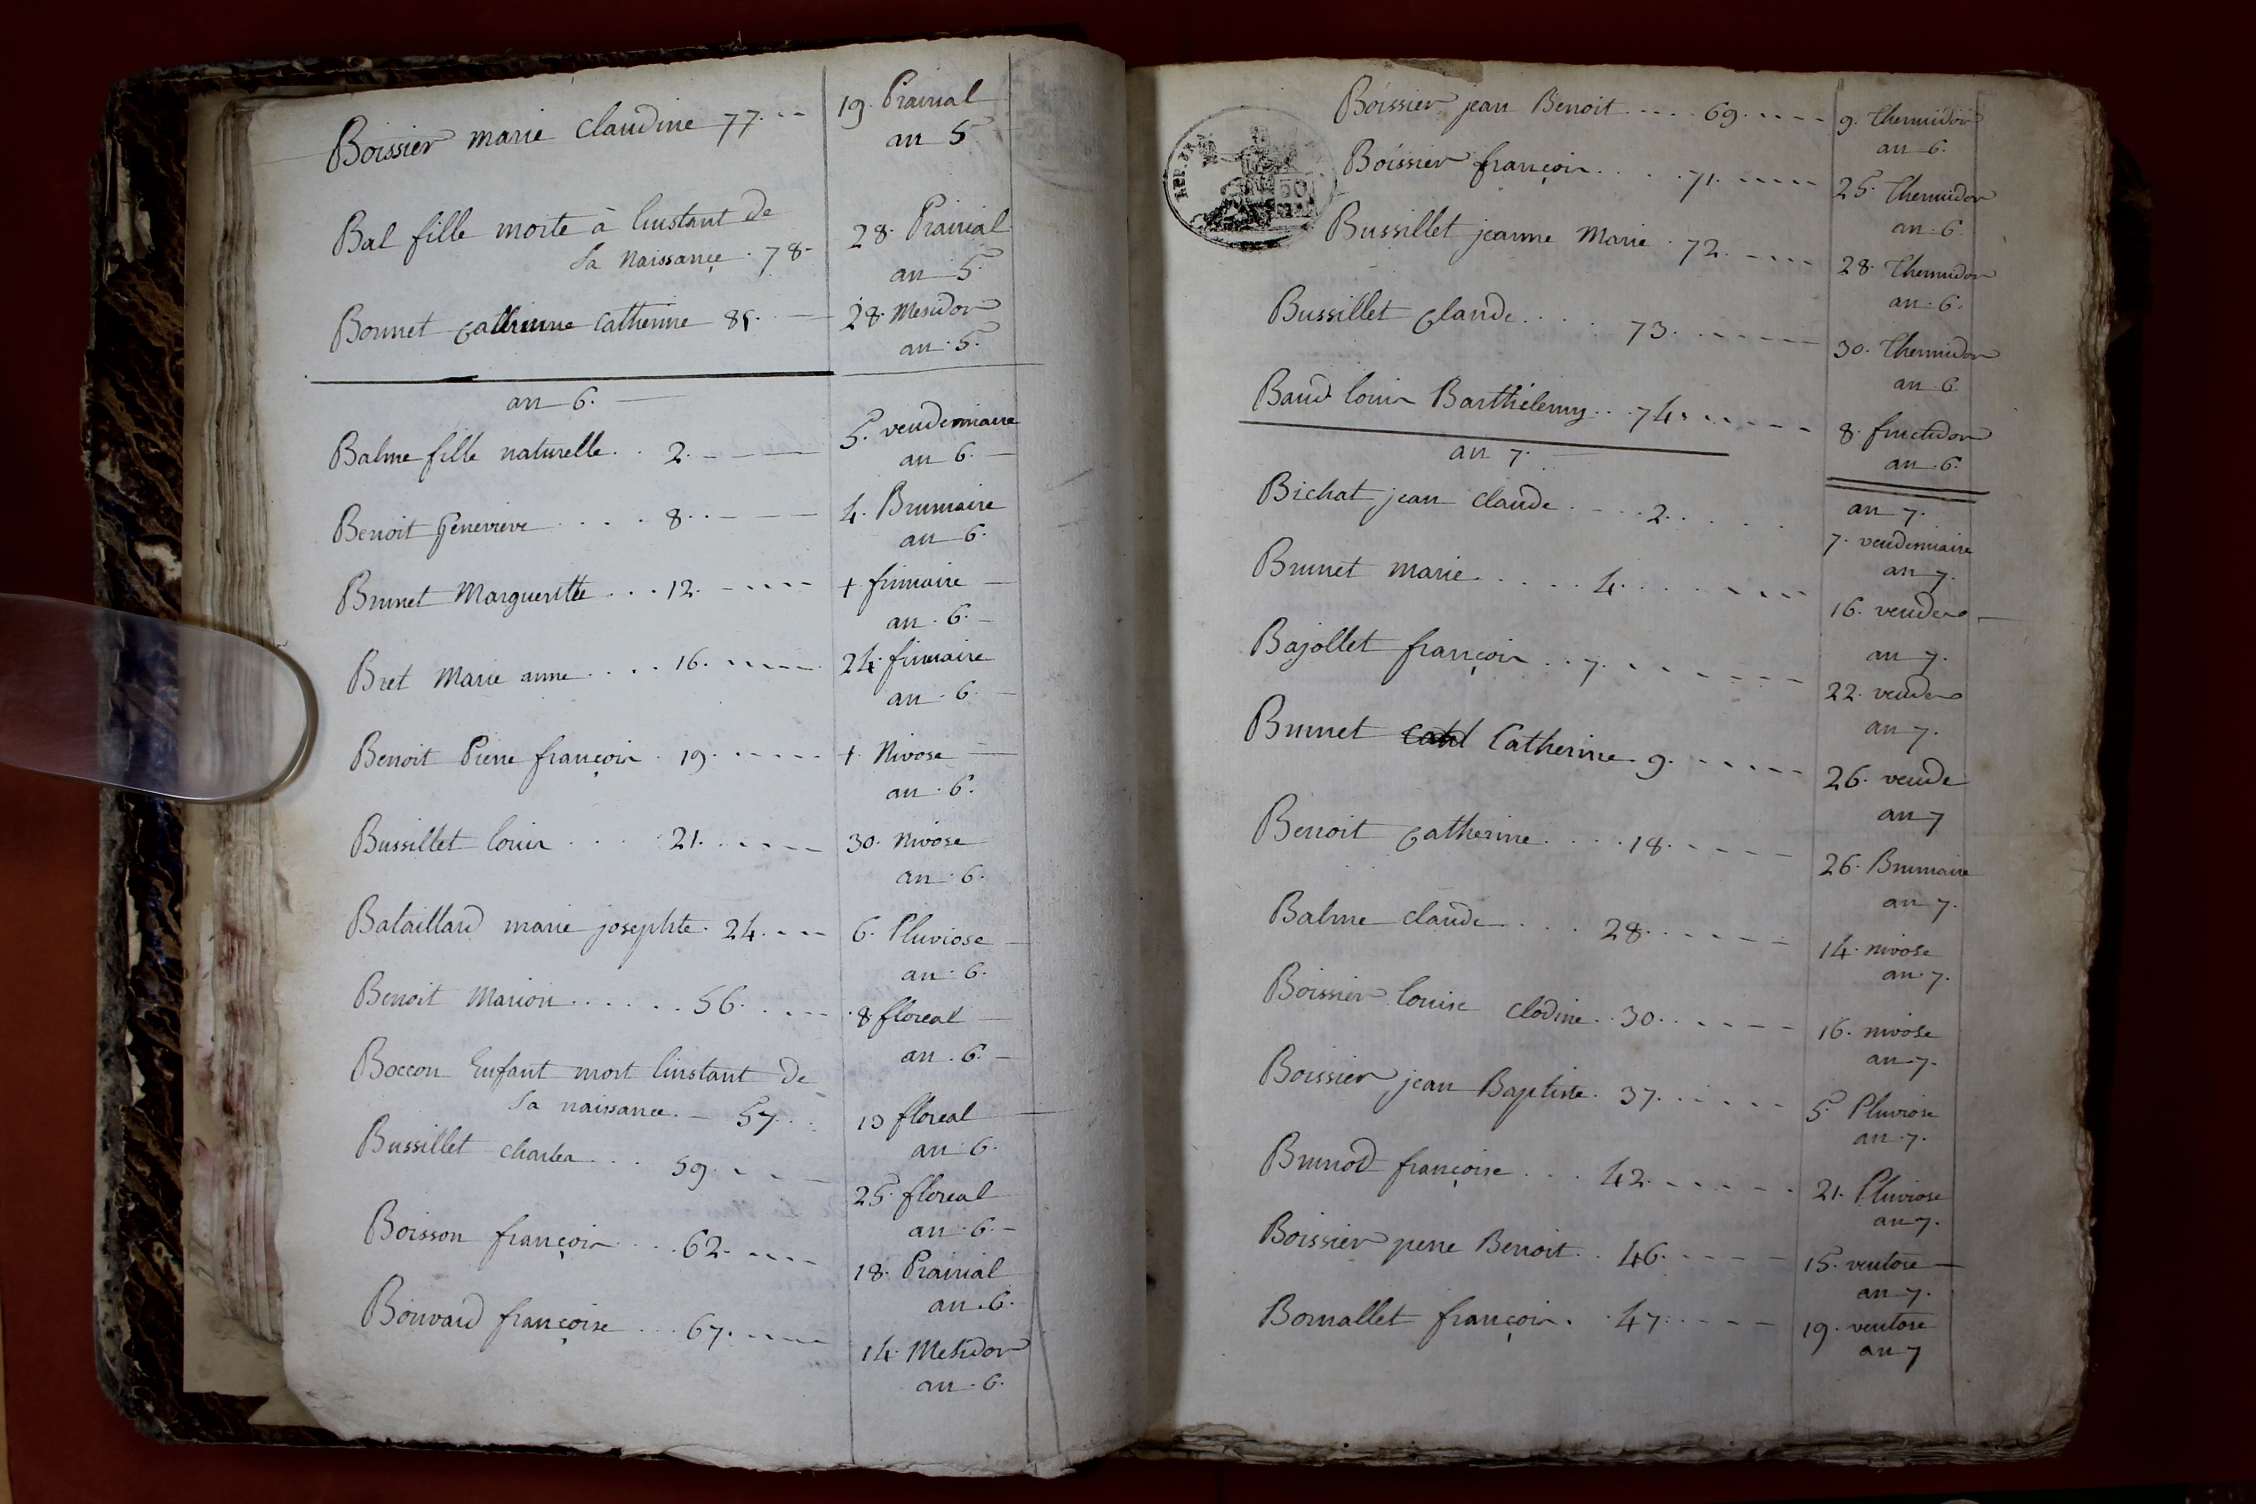 Boissier marie Claudine 77. -- 19. Prairial
an 5
Bal fille morte à linstant de
sa Naissançe . 78. 28. Prairial
an 5.
Bonnet Catherine 28. Mesidor
an . 5.
an 6.
Balme fille naturelle . . 2. - - - 5. vendemiaire
an 6.
Benoit Genevieve . . . . 8. . - - - 4. Brumaire
an 6.
Brunet Margueritte . . . 12. - - - - + frimaire
an . 6.
Bret Marie anne . . . . 16. - - - - 24. frimaire
an . 6.
Benoit Pierre françois . 19. - - - - + Nivose
an . 6.
Bussillet louis . . . 21. - - - - 30. Nivose
an . 6.
Bataillard marie josephte . 24. - - - 6. Pluviose
an . 6.
Benoit Marion . . . . . 56. . - - - 8 floreal
an . 6.
Boccon Enfant mort linstant de
sa naissance. - 57. . . 13 floreal
an . 6.
Bussillet charles . . 59. - - - 25. floreal
an . 6.
Boisson françois . . . 62. - - - 18. Prairial
an . 6.
Bouvard françoise . . . 67. - - - - 14. Mesidor
an . 6.
REP. FRA
50
Boissier jean Benoit . . . . 69. - - - - 9. thermidor
an 6.
Boissier françois . . . . . 71. - - - - 25. Thermidor
an . 6.
Bussillet jeanne Marie . 72. - - - - 28. Thermidor
an . 6.
Bussillet claude . . . . 73. - - - - - 30. Thermidor
an . 6
Baud louis Barthélemy . . . 74. - - - - - 8. fructidor
an . 6.
an 7.
Bichat jean Claude . . . . 2. . . . . an 7.
7. vendemiaire
an 7.
Brunet marie . . . . . 4. . . . - - - 16. vende
an 7.
Bajollet françois . . 7. - - - - - 22. vende
an 7.
Brunet Catherine . 9. - - - - - 26. vende
an 7
Benoit catherine . . . . 18. - - - - - 26. Brumaire
an 7.
Balme claude . . . 28. - - - - - 14. nivose
an . 7.
Boissier louise clodine . . 30. - - - - - 16. nivose
an . 7.
Boissier jean Baptiste . 37. - - - - - 5. Pluviose
an . 7.
Brunod françoise . . . 42. - - - - - 21. Pluviose
an 7.
Boissier pierre Benoit . . 46. - - - - 15. ventose
an 7.
Bornallet françois . . 47. - - - - 19. ventose
an 7